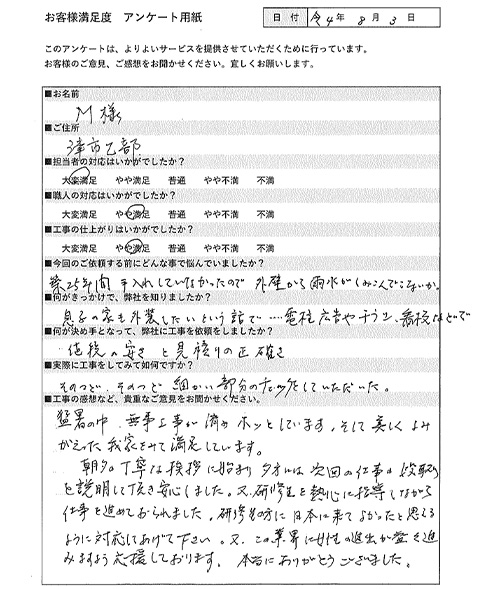 お客様満足度 アンケート用紙
日付 令4年8月3日
このアンケートは、よりよいサービスを提供させていただくために行っています。
お客様のご意見、ご感想をお聞かせください。宜しくお願いします。
■お名前
M様
■ご住所
津市乙部
■担当者の対応はいかがでしたか？
大変満足 やや満足 普通 やや不満 不満
■職人の対応はいかがでしたか？
大変満足 やや満足 普通 やや不満 不満
■工事の仕上がりはいかがでしたか？
大変満足 やや満足 普通 やや不満 不満
■今回のご依頼する前にどんな事で悩んでいましたか？
築25年間手入れしていなかったので 外壁から雨水がしみこんでこないか。
■何がきっかけで、弊社を知りましたか？
息子の家も外装したいという話で…電柱広告やチラシ、看板などで
■何が決め手となって、弊社に工事を依頼をしましたか？
値段の安さと見積りの正確さ
■実際に工事をしてみて如何ですか？
そのつど、そのつど 細かい部分の対処をしていただいた。
■工事の感想など、貴重なご意見をお聞かせください。
猛暑の中、無事工事が済みホッとしています。そして美しくよみ
がえった我家をみて満足しています。
朝夕の丁寧な挨拶に始まり 夕方には次回の仕事の段取り
を説明して頂き安心しました。又、研修生を熱心に指導しながら
仕事を進めておられました。研修生の方に日本に来てよかったと思える
ように対応してあげて下さい。又、この業界に女性の進出が益々進
みますよう応援しております。本当にありがとうございました。